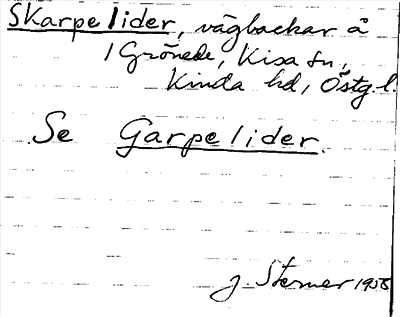 Skarpelider, vägbackar å
1 Grönede, Kisa sn,
Kinda hd, Östg. l.
Se Garpelider.
J. Sterner